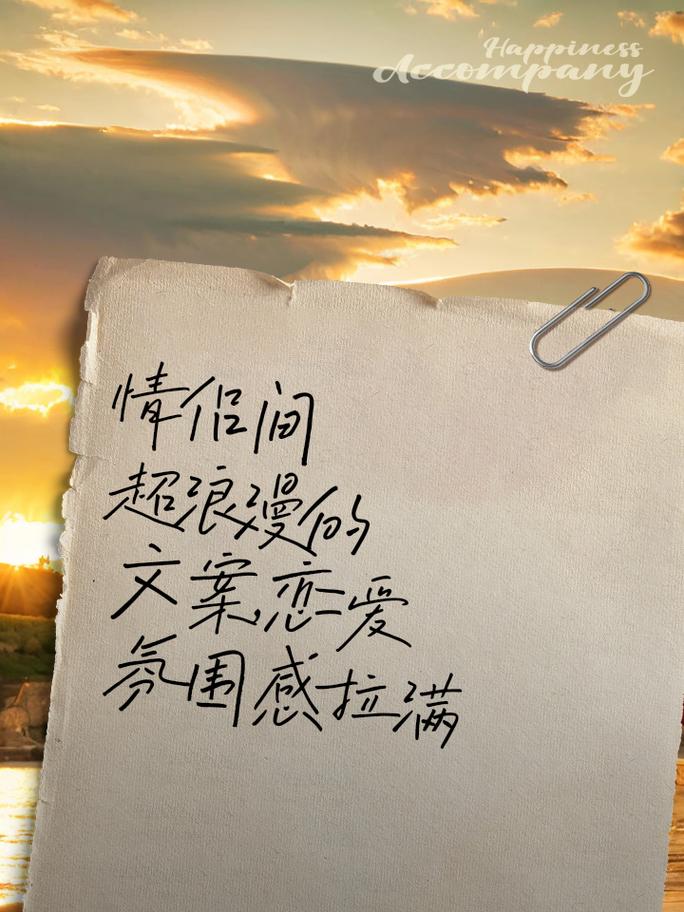 Happiness
Accompany
情侣间
超浪漫的
文案,恋爱
氛围感拉满